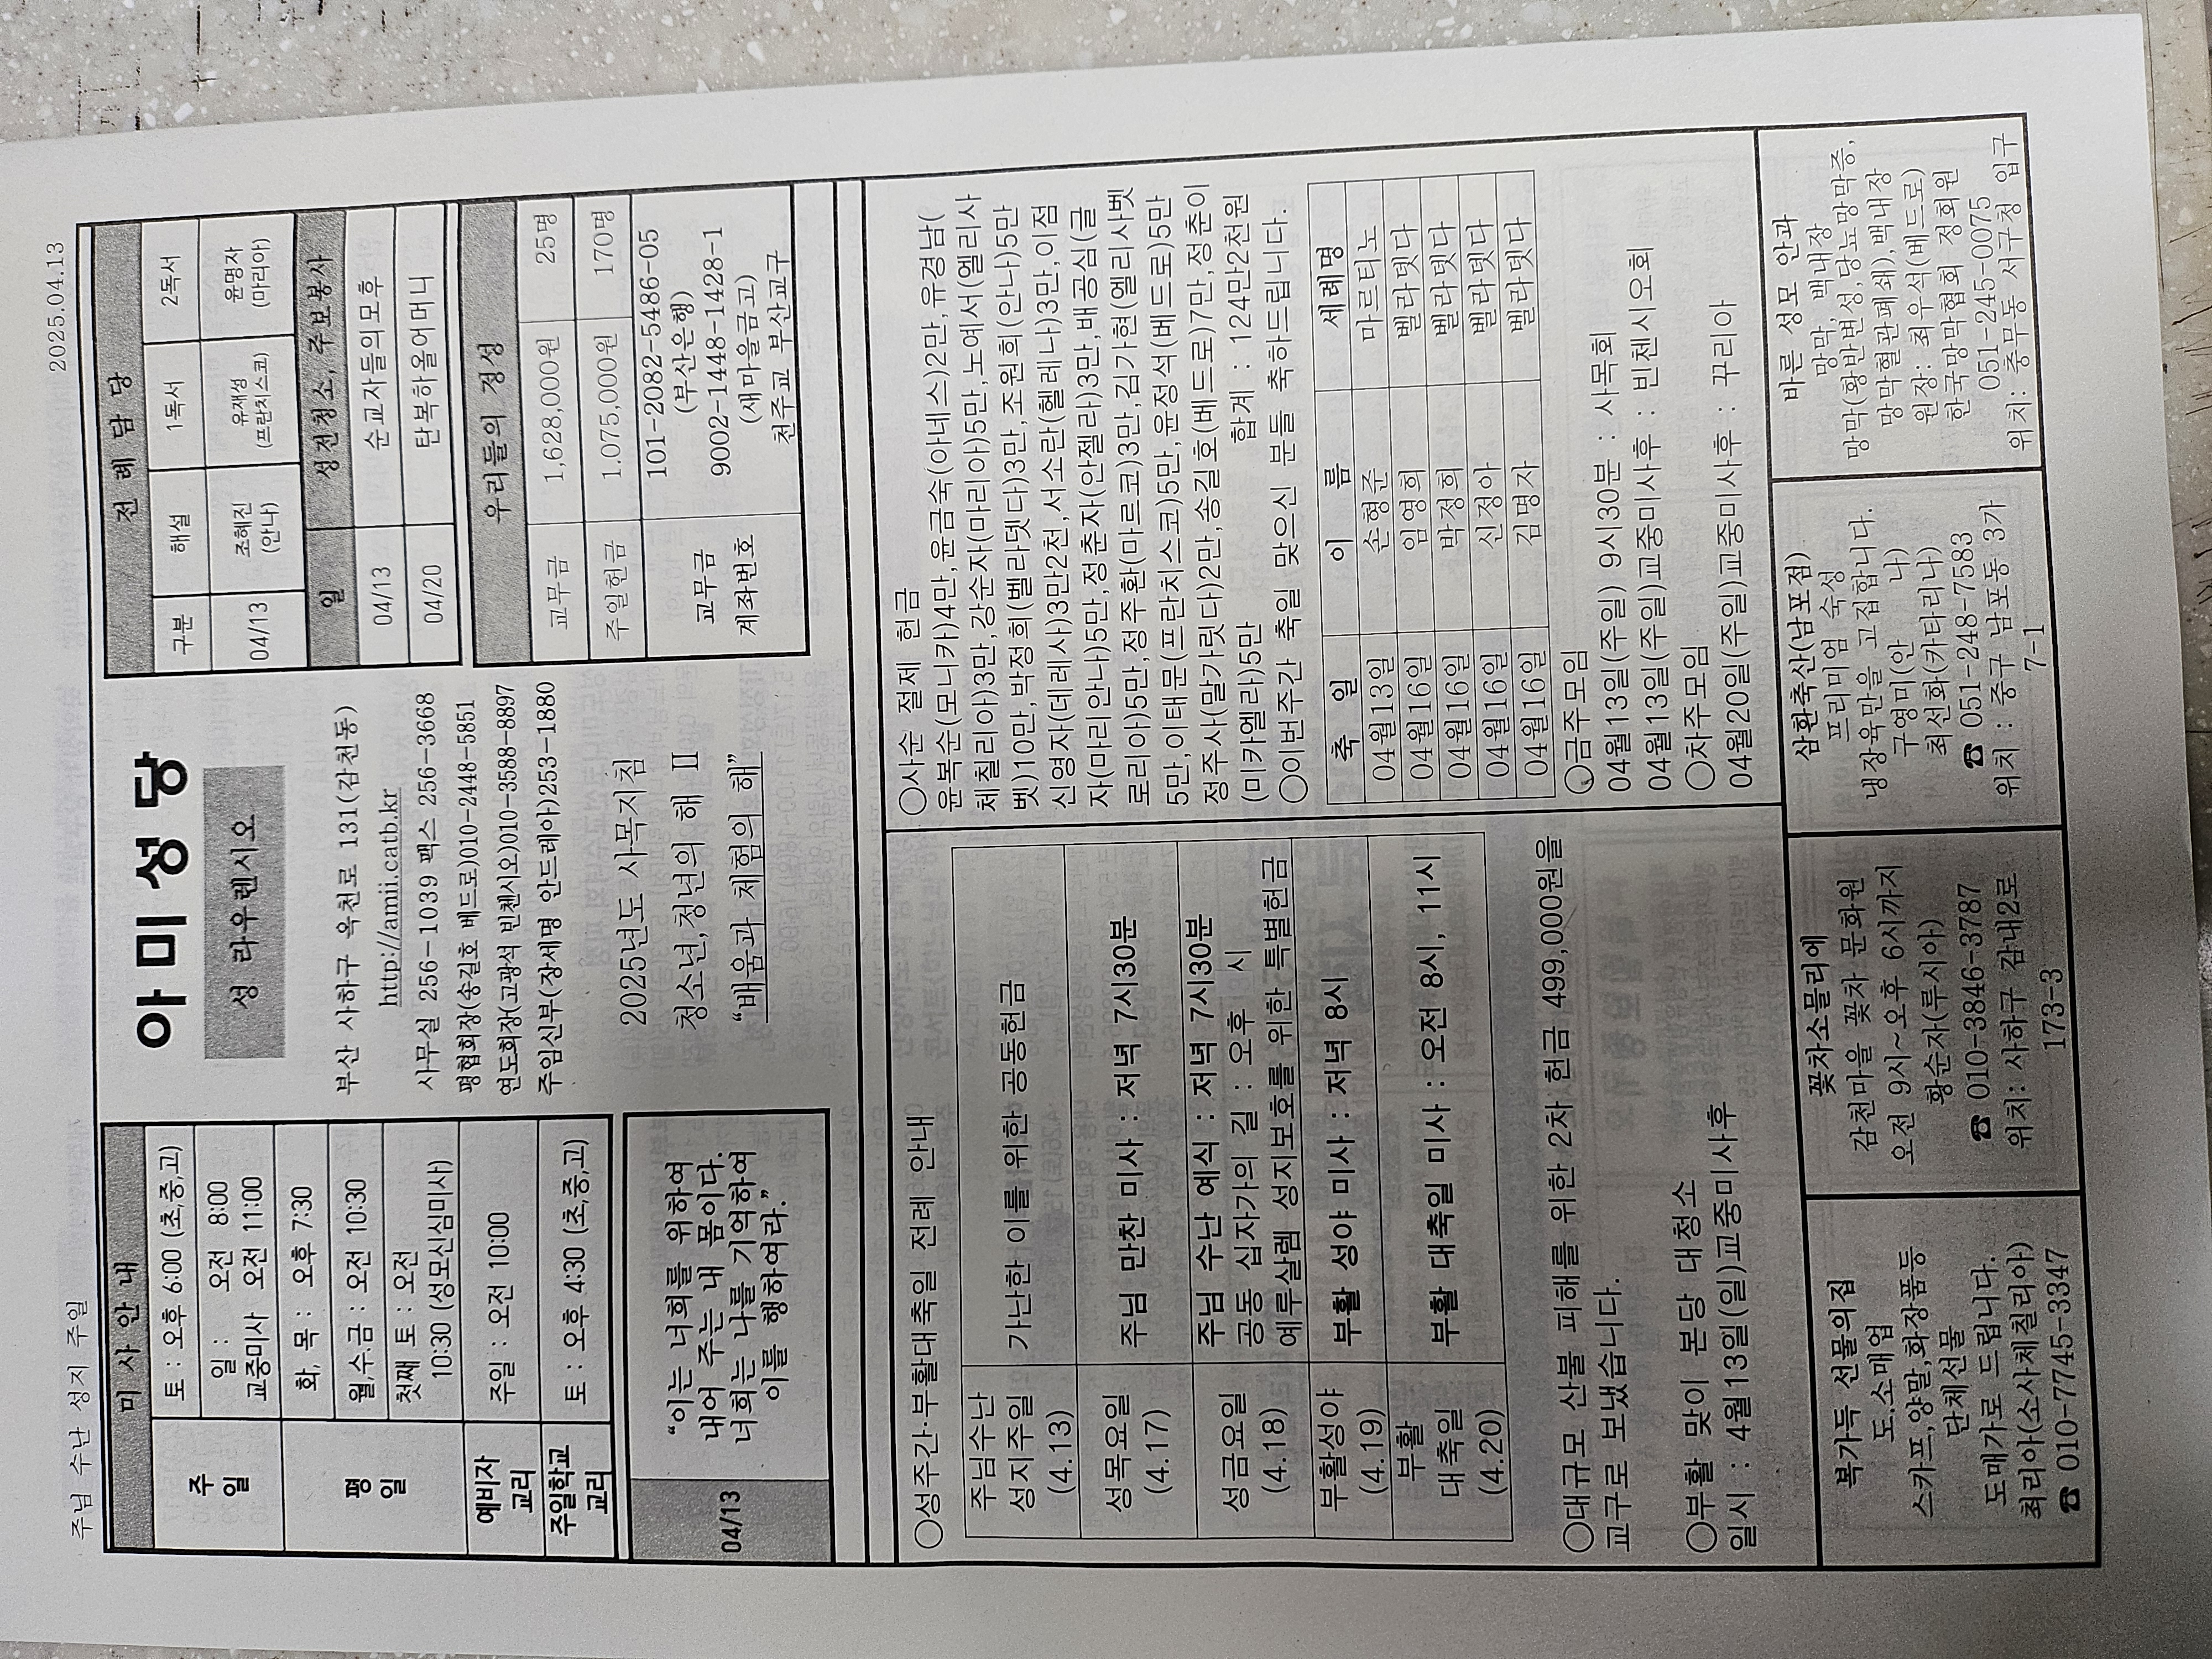 주님 수난 성지 주일
2025.04.13
미 사 안 내
주 일
토 : 오후 6:00 (초,중,고)
일 : 오전 8:00
교중미사 오전 11:00
평 일
화, 목 : 오후 7:30
월,수.금 : 오전 10:30
첫째 토 : 오전
10:30 (성모신심미사)
예비자 교리
주일 : 오전 10:00
주일학교 교리
토 : 오후 4:30 (초,중,고)
04/13
“이는 너희를 위하여
내어 주는 내 몸이다.
너희는 나를 기억하여
이를 행하여라.”
아미성당
성 라우렌시오
부산 사하구 옥천로 131(감천동)
http://amii.catb.kr
사무실 256-1039 팩스 256-3668
평협회장(송길호 베드로)010-2448-5851
연도회장(고광석 빈첸시오)010-3588-8897
주임신부(장세명 안드레아)253-1880
2025년도 사목지침
청소년,청년의 해 Ⅱ
“배움과 체험의 해”
전 례 담 당
구분 해설 1독서 2독서
04/13 조혜진 (안나) 유재성 (프란치스코) 윤명자 (마리아)
일 성전청소,주보봉사
04/13 순교자들의모후
04/20 탄복하올어머니
우리들의 정성
교무금 1,628,000원 25명
주일헌금 1.075,000원 170명
교무금 계좌번호
101-2082-5486-05
(부산은행)
9002-1448-1428-1
(새마을금고)
천주교 부산교구
○성주간·부활대축일 전례 안내
주님수난 성지주일 (4.13) 가난한 이를 위한 공동헌금
성목요일 (4.17) 주님 만찬 미사 : 저녁 7시30분
성금요일 (4.18)
주님 수난 예식 : 저녁 7시30분
공동 십자가의 길 : 오후 3시
예루살렘 성지보호를 위한 특별헌금
부활성야 (4.19) 부활 성야 미사 : 저녁 8시
부활 대축일 (4.20) 부활 대축일 미사 : 오전 8시, 11시
○대규모 산불 피해를 위한 2차 헌금 499,000원을
교구로 보냈습니다.
○부활 맞이 본당 대청소
일시 : 4월13일(일)교중미사후
○사순 절제 헌금
윤복순(모니카)4만,윤금숙(아네스)2만,유경남(
체칠리아)3만,강순자(마리아)5만,노예서(엘리사
벳)10만,박정희(벨라뎃다)3만,조원희(안나)5만
신영자(데레사)3만2천,서소란(헬레나)3만,이점
자(마리안나)5만,정춘자(안젤라)3만,배공심(글
로리아)5만,정주환(마르코)3만,김가현(엘리사벳
5만,이태문(프란치스코)5만,윤정석(베드로)5만
정주사(말가릿다)2만,송길호(베드로)7만,정춘이
(미카엘라)5만 합계 : 124만2천원
○이번주간 축일 맞으신 분들 축하드립니다.
축 일 이 름 세례명
04월13일 손형준 마르티노
04월16일 임영희 벨라뎃다
04월16일 박정희 벨라뎃다
04월16일 신정아 벨라뎃다
04월16일 김명자 벨라뎃다
○금주모임
04월13일(주일) 9시30분 : 사목회
04월13일(주일)교중미사후 : 빈첸시오회
○차주모임
04월20일(주일)교중미사후 : 꾸리아
복가득 선물의집
도.소매업
스카프,양말,화장품등
단체선물
도매가로 드립니다.
최리아(소사체칠리아)
☎ 010-7745-3347
꽃차소믈리에
감천마을 꽃차 문화원
오전 9시~오후 6시까지
황순자(루시아)
☎ 010-3846-3787
위치: 사하구 감내2로
173-3
삼환축산(남포점)
프리미엄 숙성
냉장육만을 고집합니다.
구영미(안 나)
최선화(카타리나)
☎ 051-248-7583
위치 : 중구 남포동 3가
7-1
바른 성모 안과
망막, 백내장
망막(황반변성,당뇨망막증,
망막혈관폐쇄),백내장
원장: 최우석(베드로)
한국망막협회 정회원
051-245-0075
위치: 충무동 서구청 입구